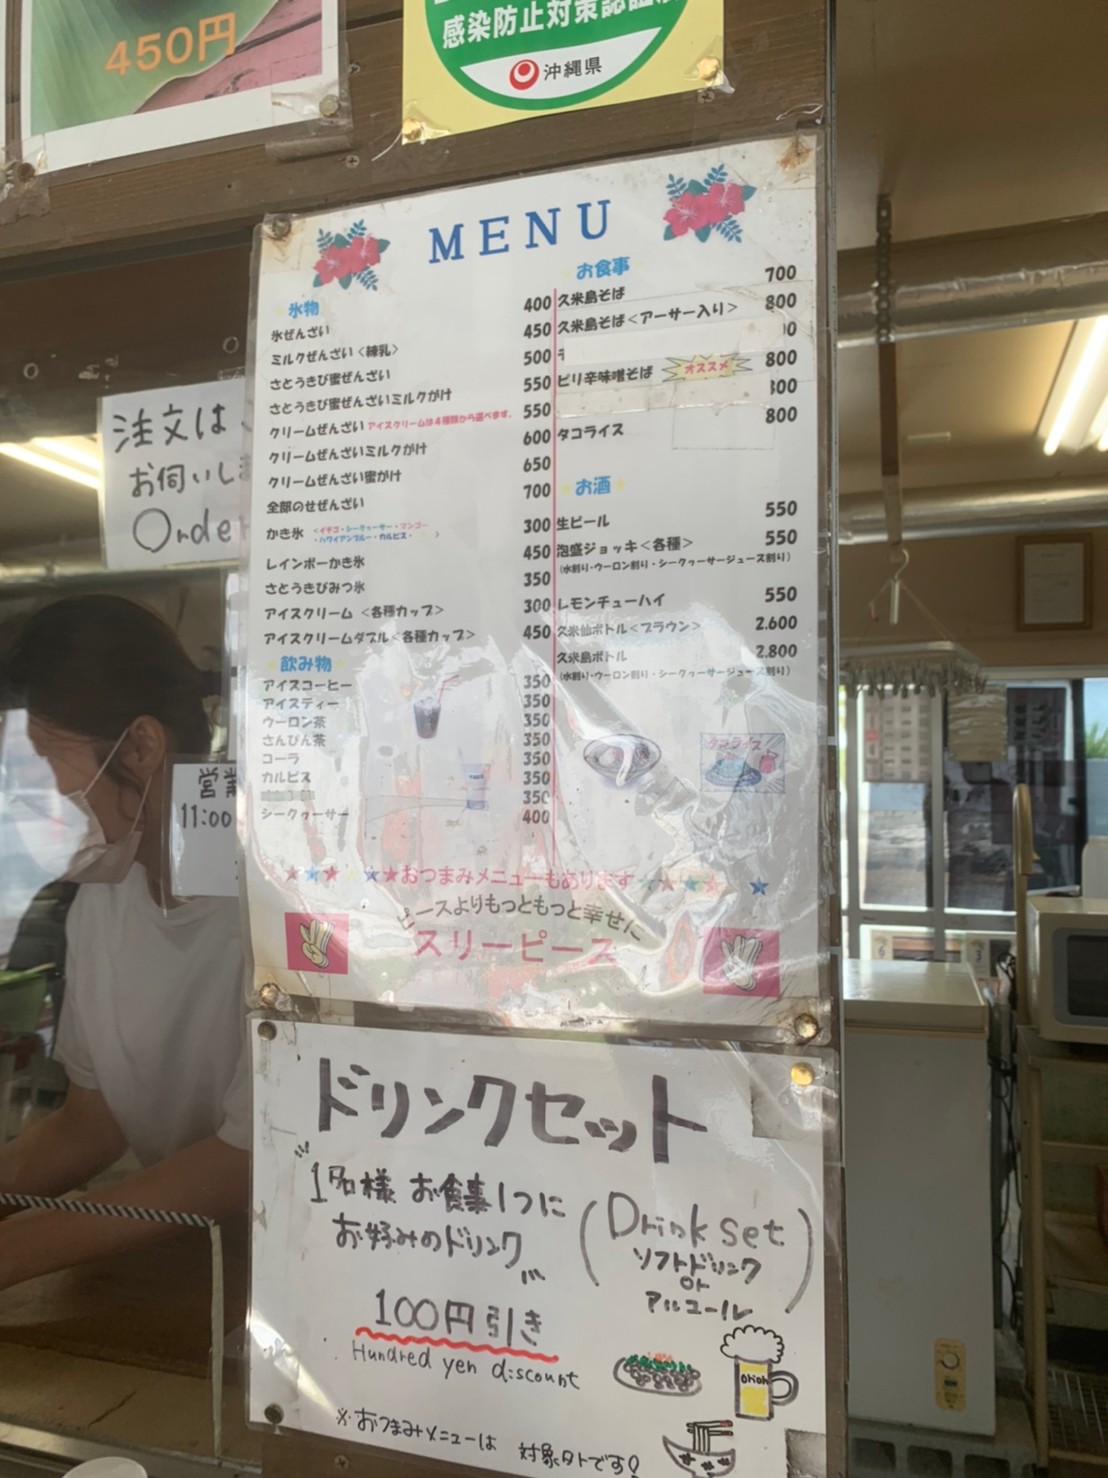 450円
感染防止対策認証
沖縄県
注文は
お伺いし
Order
営業
11:00
MENU
氷物
氷ぜんざい 400
ミルクぜんざい〈練乳〉 450
さとうきび蜜ぜんざい 500
さとうきび蜜ぜんざいミルクがけ 550
クリームぜんざい アイスクリームは4種類から選べます。 550
クリームぜんざいミルクがけ 600
クリームぜんざい蜜がけ 650
全部のせぜんざい 700
かき氷 <イチゴ・シークヮーサー・マンゴー 300
・ハワイアンブルー・カルピス・ >
レインボーかき氷 450
さとうきびみつ氷 350
アイスクリーム <各種カップ> 300
アイスクリームダブル<各種カップ> 450
飲み物
アイスコーヒー 350
アイスティー 350
ウーロン茶 350
さんぴん茶 350
コーラ 350
カルピス 350
350
シークヮーサー 400
お食事
久米島そば 700
久米島そば<アーサー入り> 800
ピリ辛味噌そば オススメ 800
タコライス 800
お酒
生ビール 550
泡盛ジョッキ<各種> 550
(水割り・ウーロン割り・シークヮーサージュース割り)
レモンチューハイ 550
久米仙ボトル<ブラウン> 2.600
久米島ボトル 2.800
(水割り・ウーロン割り・シークヮーサージュース割り)
タコライス
★おつまみメニューもあります☆
ピースよりもっともっと幸せに
スリーピース
ドリンクセット
"1名様 お食事1つに
お好みのドリンク"
(Drink set
ソフトドリンク
or
アルコール)
100円引き
Hundred yen discount
orion
※おつまみメニューは 対象外です!